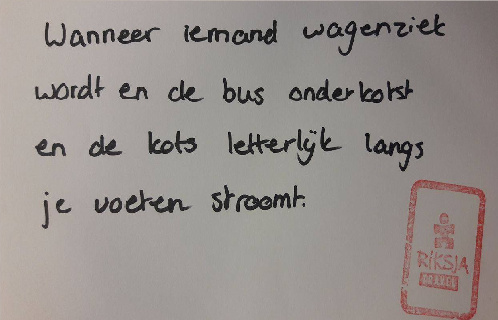 Wanneer iemand wagenziek
wordt en de bus onderkotst
en de kots letterlijk langs
je voeten stroomt.
RiKSJA